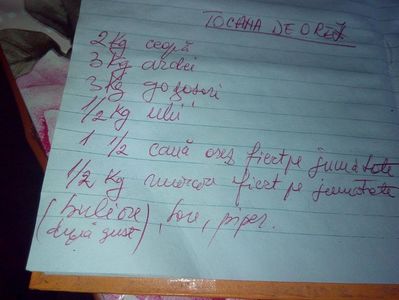 TOCANA DE OREZ
2 Kg ceapă
3 Kg ardei
3 Kg gogosari
1/2 Kg ulii
1 1/2 cană orez fiert pe jumatate
1/2 Kg morcov fiert pe jumatate
(bulion, sare, piper.
după gust)